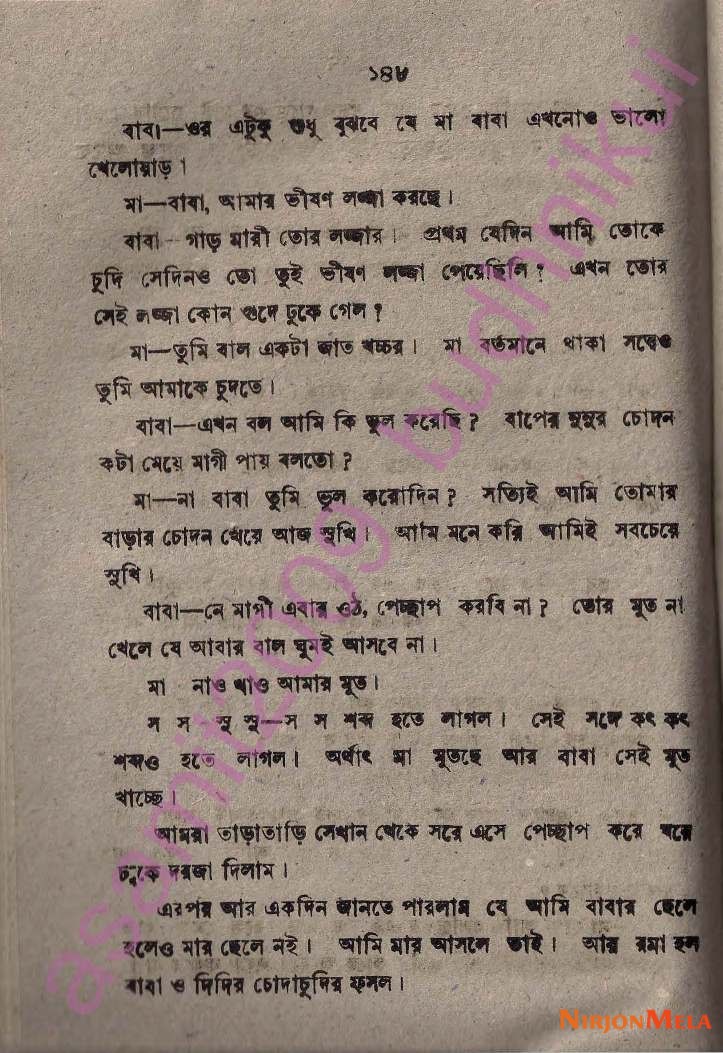 ১৪৮
বাবা—ওর এটুকু শুধু বুঝবে যে মা বাবা এখনোও ভালো
খেলোয়াড়।
মা—বাবা, আমার ভীষণ লজ্জা করছে।
বাবা—গাঁড় মারী তোর লজ্জার। প্রথম যেদিন আমি তোকে
চুদি সেদিনও তো তুই ভীষণ লজ্জা পেয়েছিলি? এখন তোর
সেই লজ্জা কোন গুদে ঢুকে গেল?
মা—তুমি বাল একটা জাত খচ্চর। মা বর্তমানে থাকা সত্ত্বেও
তুমি আমাকে চুদতে।
বাবা—এখন বল আমি কি ভুল করেছি? বাপের চোদন
কটা মেয়ে মাগী পায় বলতো?
মা—না বাবা তুমি ভুল করোদিন? সত্যিই আমি তোমার
বাড়ার চোদন খেয়ে আজ সুখি। আমি মনে করি আমিই সবচেয়ে
সুখি।
বাবা—নে মাগী এবার ওঠ, পেচ্ছাপ করবি না? তোর মুত না
খেলে যে আবার বাল ঘুমই আসবে না।
মা নাও খাও আমার মুত।
স স সু সু—স স শব্দ হতে লাগল। সেই সঙ্গে কৎ কৎ
শব্দও হতে লাগল। অর্থাৎ মা মুতছে আর বাবা সেই মুত
খাচ্ছে।
আমরা তাড়াতাড়ি সেখান থেকে সরে এসে পেচ্ছাপ করে ঘরে
ঢুকে দরজা দিলাম।
এরপর আর একদিন জানতে পারলাম যে আমি বাবার ছেলে
হলেও মার ছেলে নই। আমি মার আসলে ভাই। আর রমা হল
বাবা ও দিদির চোদাচুদির ফসল।
asamit2009 budhnikui
NIRJONMELA